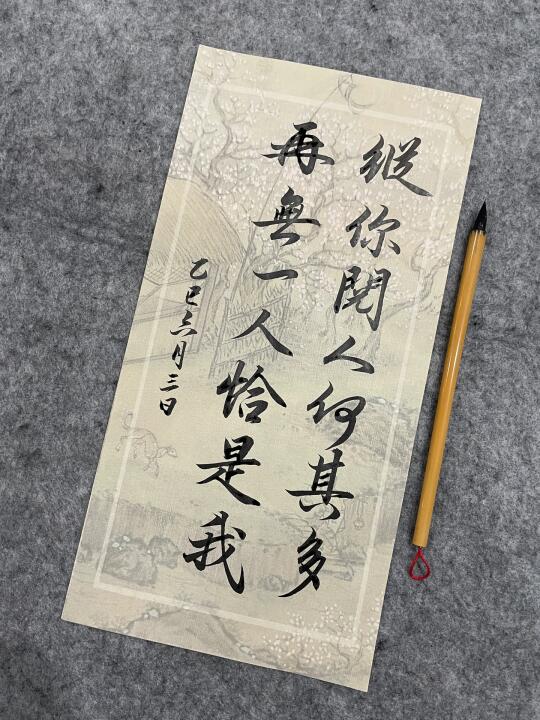 縱你閱人何其多
再無一人恰是我
乙巳六月三日